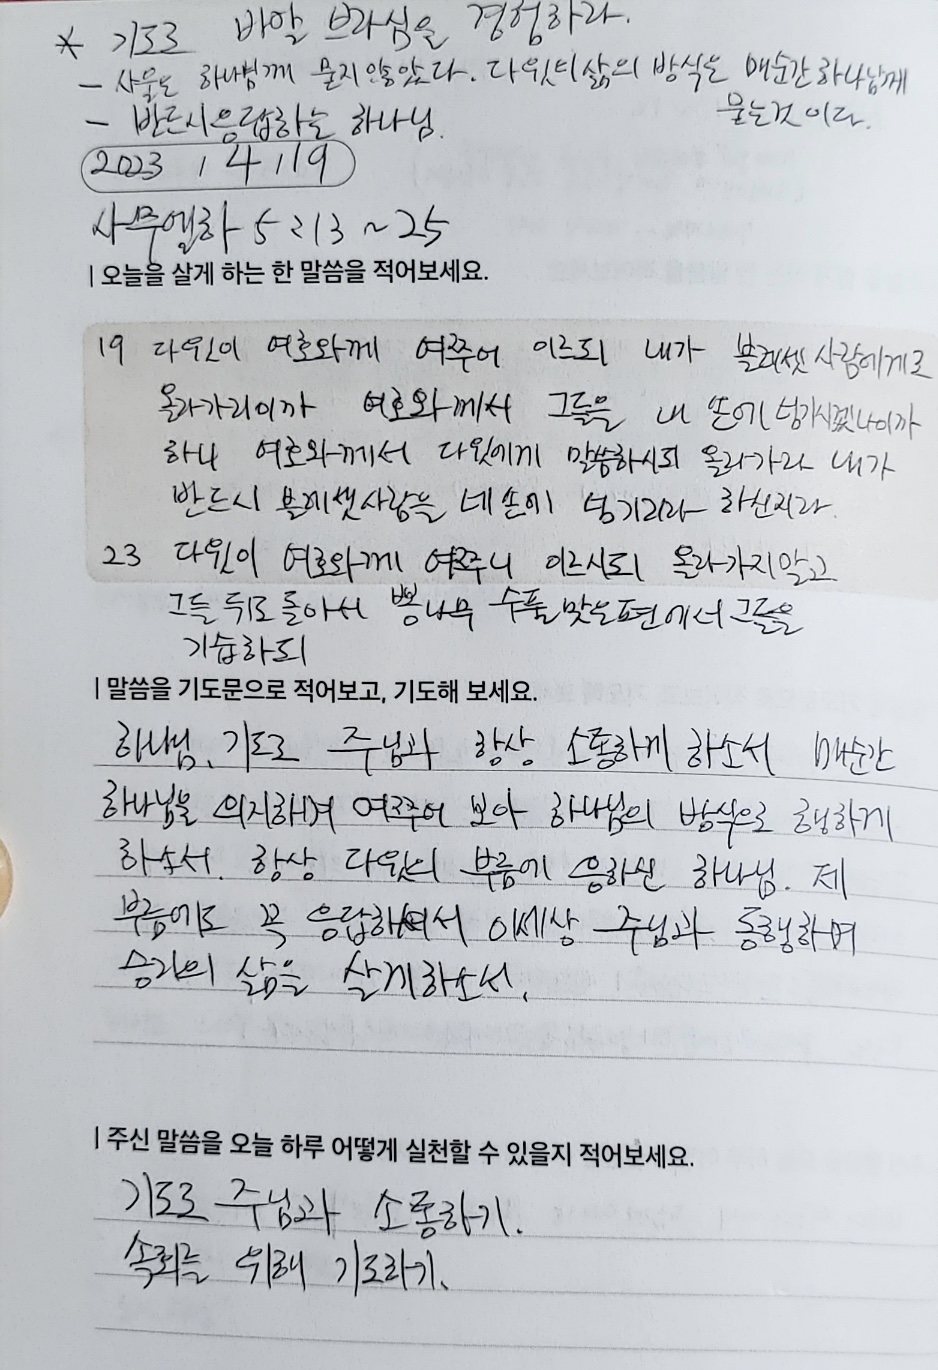 * 기도로 바알 브라심을 경험하라.
- 사울은 하나님께 묻지않았다. 다윗의삶의 방식은 매순간하나님께
묻는것이다.
- 반드시응답하는 하나님.
2023. 4. 19
사무엘하 5:13~25
|오늘을 살게 하는 한 말씀을 적어보세요.
19 다윗이 여호와께 여쭈어 이르되 내가 블레셋사람에게로
올라가리이까 여호와께서 그들을 내 손에넘기시겠나이까
하니 여호와께서 다윗에게 말씀하시되 올라가라 내가
반드시 블레셋사람을 네손에 넘기리라 하신지라.
23 다윗이 여호와께 여쭈니 이르시되 올라가지말고
그들 뒤로돌아서 뽕나무 수풀맞은편에서그들을
기습하되
|말씀을 기도문으로 적어보고, 기도해 보세요.
하나님, 기도로 주님과 항상 소통하게 하소서 매순간
하나님을 의지하여 여쭈어 보아 하나님의 방식으로 행하게
하소서. 항상 다윗의 부름에 응하신 하나님. 제
부름에도 꼭 응답하셔서 이세상 주님과 동행하며
승리의 삶을 살게하소서.
|주신 말씀을 오늘 하루 어떻게 실천할 수 있을지 적어보세요.
기도로 주님과 소통하기.
위해 기도하기.